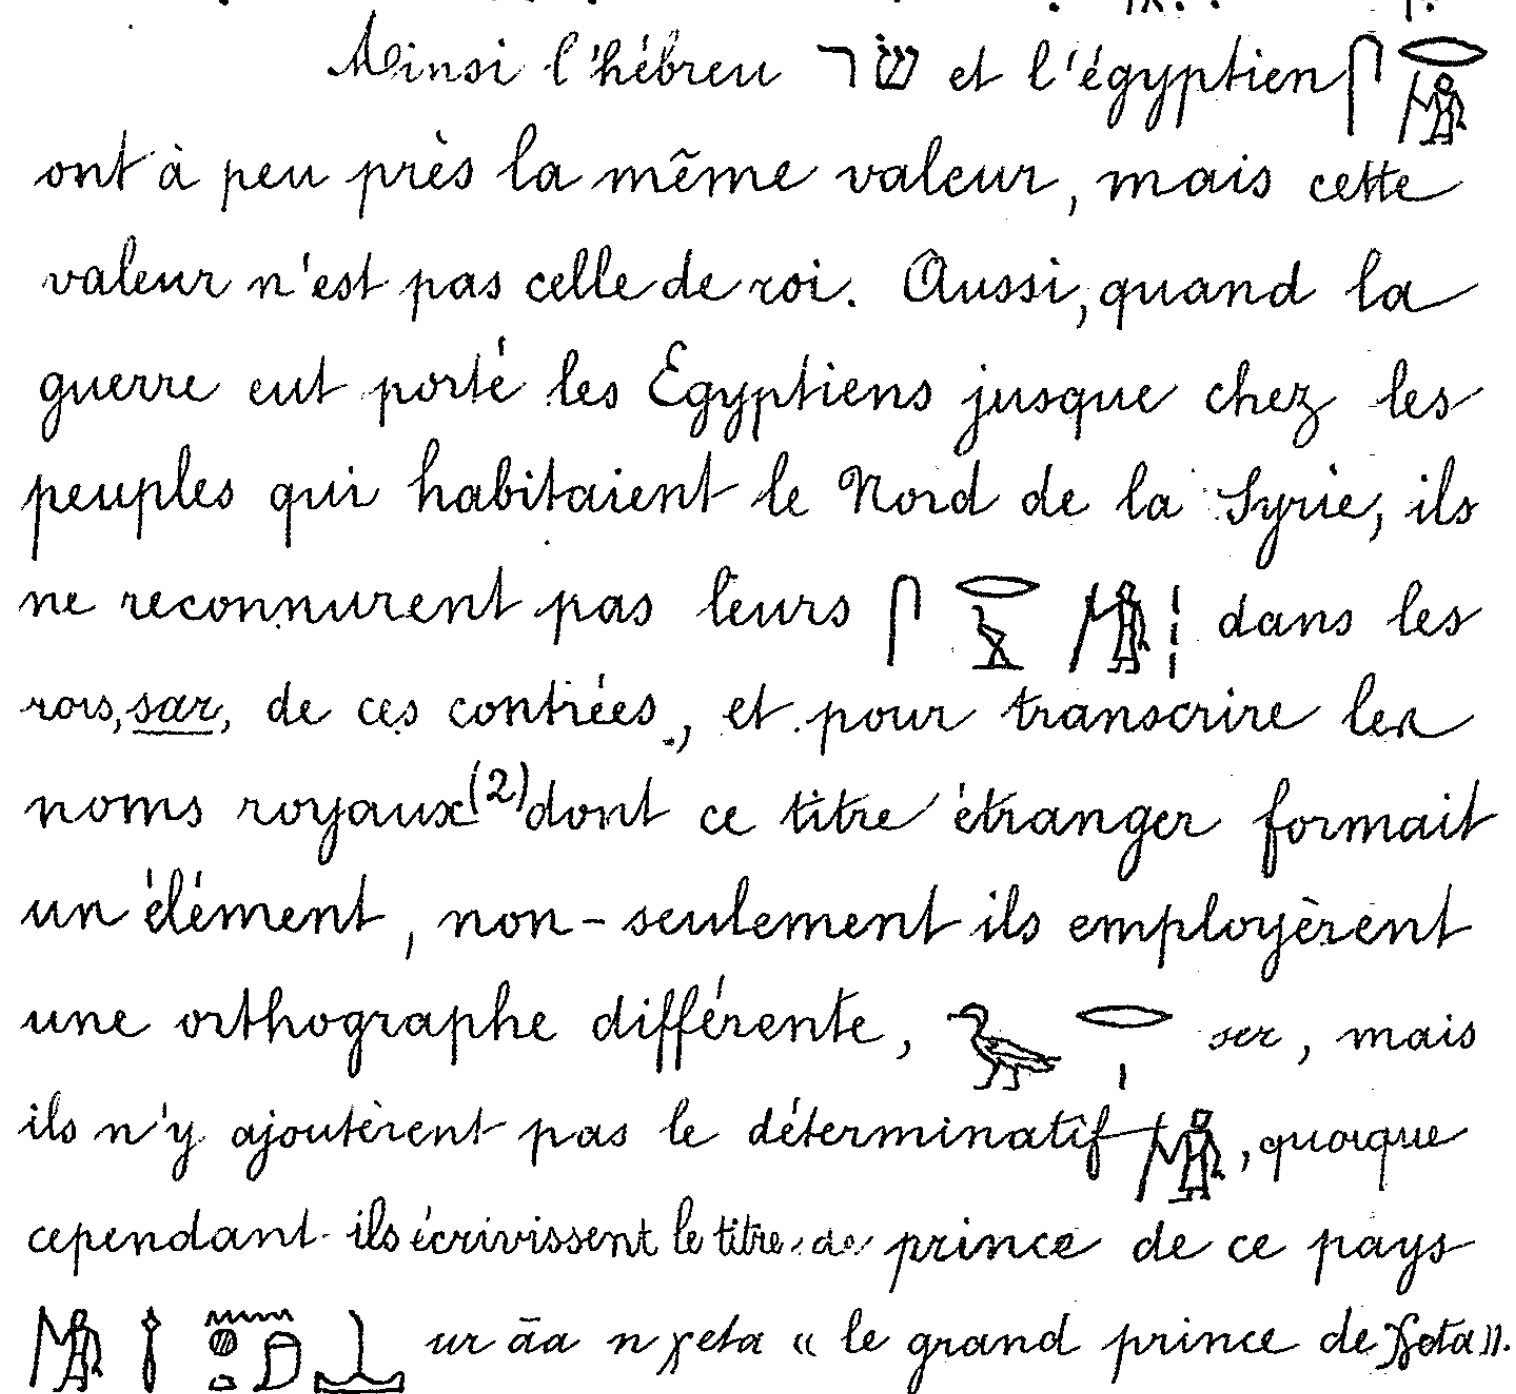 Ainsi l'hébreu שׂר et l'égyptien 𓋴𓂋𓀙
ont à peu près la même valeur, mais cette
valeur n'est pas celle de roi. Aussi, quand la
guerre eut porté les Egyptiens jusque chez les
peuples qui habitaient le Nord de la Syrie, ils
ne reconnurent pas leurs dans les
rois, sar, de ces contrées, et pour transcrire les
noms royaux (2) dont ce titre étranger formait
un élément, non-seulement ils employèrent
une orthographe différente, 𓅭𓂋𓏤 ser, mais
ils n'y ajoutèrent pas le déterminatif 𓀙, quoique
cependant ils écrivissent le titre de prince de ce pays
ur āa n χeta « le grand prince de χeta ».